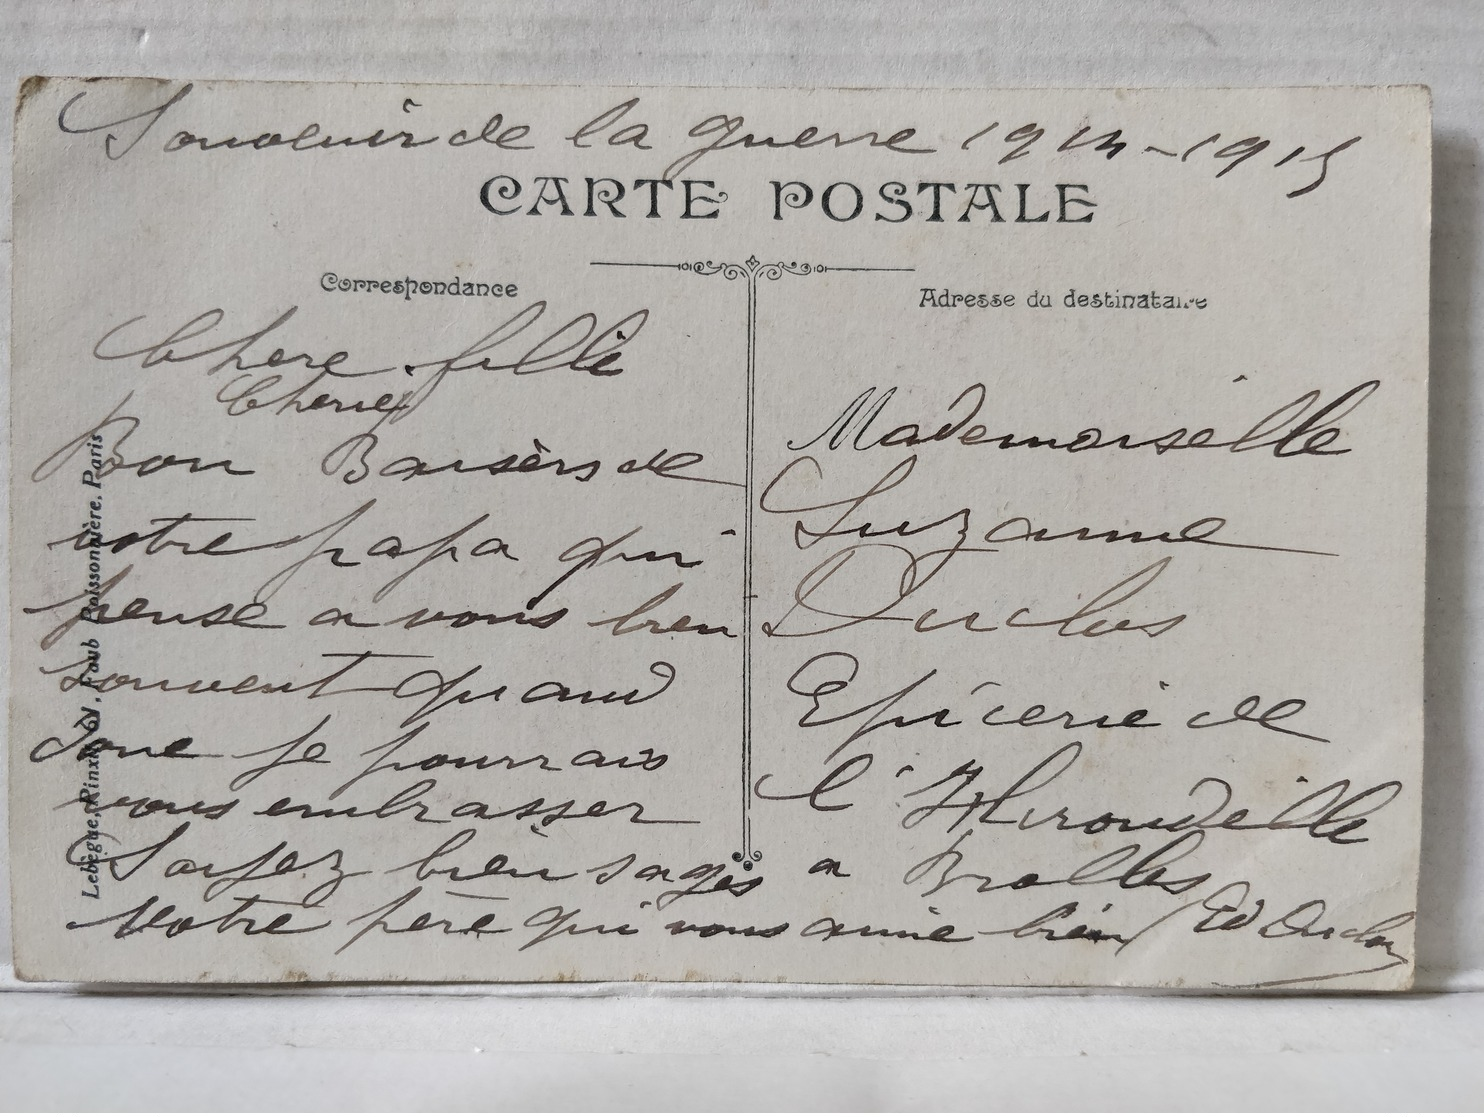 Souvenir de la guerre 1914-1915
CARTE POSTALE
Correspondance
Chere fille
Cherie
Bon Baisèrs de
votre papa qui
pense a vous bien
souvent quand
donc je pourrais
vous embrasser
Soyez bien sages
Votre père qui vous aime bien Ed Duclos
Adresse du destinataire
Mademoiselle
Suzanne
Duclos
Epicerie de
l'Hirondelle
a Brolles
Lebègue, Rinx, 61, Faub Poissonnière, Paris